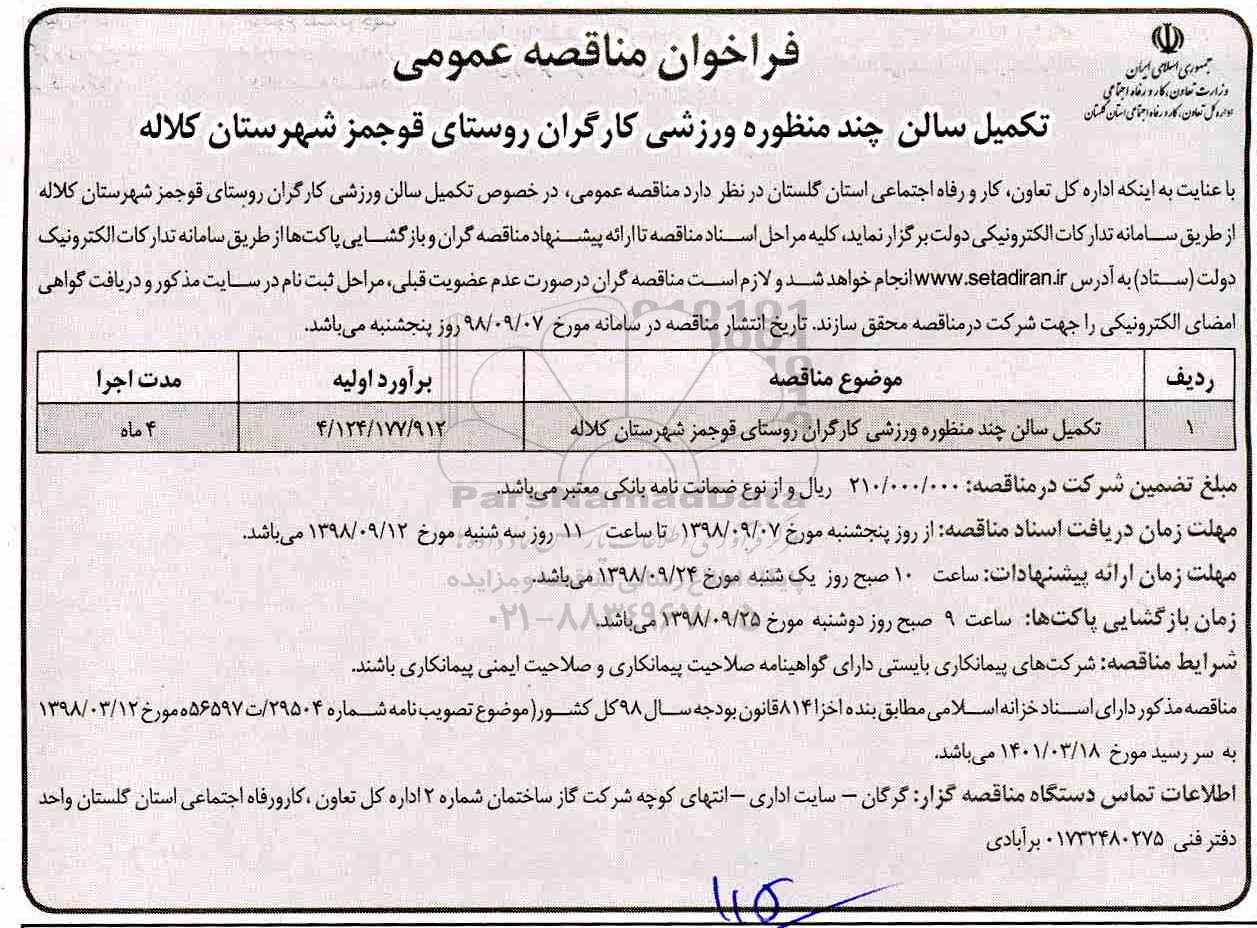 جمهوری اسلامی ایران
وزارت تعاون، کار و رفاه اجتماعی
اداره کل تعاون، کار و رفاه اجتماعی استان گلستان
فراخوان مناقصه عمومی
تکمیل سالن چند منظوره ورزشی کارگران روستای قوجمز شهرستان کلاله
با عنایت به اینکه اداره کل تعاون، کار و رفاه اجتماعی استان گلستان در نظر دارد مناقصه عمومی، در خصوص تکمیل سالن ورزشی کارگران روستای قوجمز شهرستان کلاله
از طریق سامانه تدارکات الکترونیکی دولت برگزار نماید، کلیه مراحل اسناد مناقصه تا ارائه پیشنهاد مناقصه گران و بازگشایی پاکت‌ها از طریق سامانه تدارکات الکترونیک
دولت (ستاد) به آدرس www.setadiran.ir انجام خواهد شد و لازم است مناقصه گران در صورت عدم عضویت قبلی، مراحل ثبت نام در سایت مذکور و دریافت گواهی
امضای الکترونیکی را جهت شرکت در مناقصه محقق سازند. تاریخ انتشار مناقصه در سامانه مورخ ۹۸/۰۹/۰۷ روز پنجشنبه می‌باشد.
ردیف موضوع مناقصه برآورد اولیه مدت اجرا
۱ تکمیل سالن چند منظوره ورزشی کارگران روستای قوجمز شهرستان کلاله ۴/۱۲۴/۱۷۷/۹۱۲ ۴ ماه
مبلغ تضمین شرکت در مناقصه: ۲۱۰/۰۰۰/۰۰۰ ریال و از نوع ضمانت نامه بانکی معتبر می‌باشد.
مهلت زمان دریافت اسناد مناقصه: از روز پنجشنبه مورخ ۱۳۹۸/۰۹/۰۷ تا ساعت ۱۱ روز سه شنبه مورخ ۱۳۹۸/۰۹/۱۲ می‌باشد.
مهلت زمان ارائه پیشنهادات: ساعت ۱۰ صبح روز یک شنبه مورخ ۱۳۹۸/۰۹/۲۴ می‌باشد.
زمان بازگشایی پاکت‌ها: ساعت ۹ صبح روز دوشنبه مورخ ۱۳۹۸/۰۹/۲۵ می‌باشد.
شرایط مناقصه: شرکت‌های پیمانکاری بایستی دارای گواهینامه صلاحیت پیمانکاری و صلاحیت ایمنی پیمانکاری باشند.
مناقصه مذکور دارای اسناد خزانه اسلامی مطابق بند ه اخزا ۸۱۴ قانون بودجه سال ۹۸ کل کشور (موضوع تصویب نامه شماره ۲۹۵۰۴/ت ۵۶۵۹۷ه مورخ ۱۳۹۸/۰۳/۱۲
به سر رسید مورخ ۱۴۰۱/۰۳/۱۸ می‌باشد.
اطلاعات تماس دستگاه مناقصه گزار: گرگان – سایت اداری – انتهای کوچه شرکت گاز ساختمان شماره ۲ اداره کل تعاون ، کارورفاه اجتماعی استان گلستان واحد
دفتر فنی ۰۱۷۳۲۴۸۰۲۷۵ برآبادی
ParsNamadData